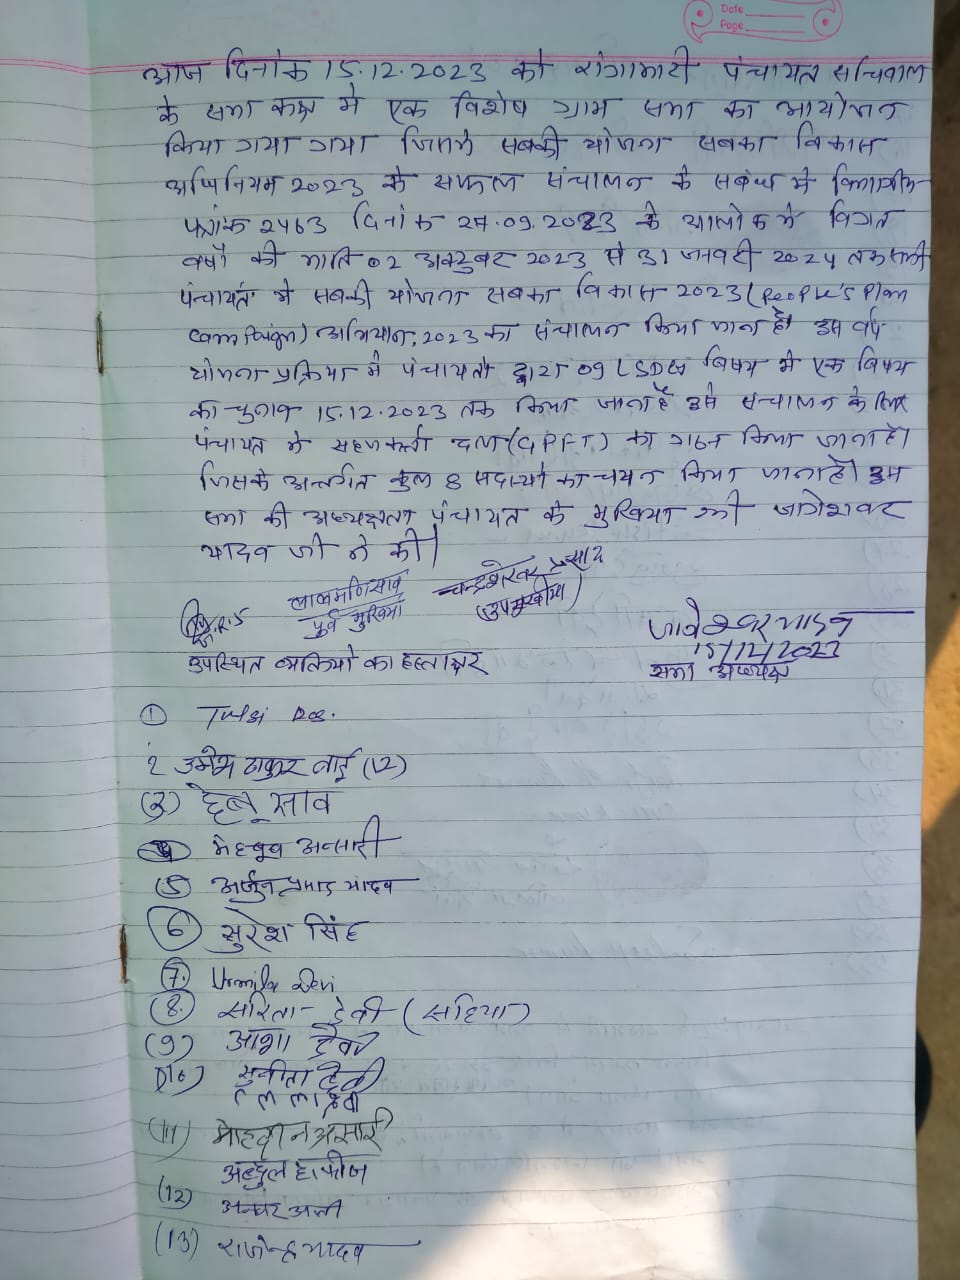 Date
Page
आज दिनांक 15.12.2023 को रांगामाटी पंचायत सचिवालय
के सभा कक्ष में एक विशेष ग्राम सभा का आयोजन
किया गया गया जिसमें सबकी योजना सबका विकास
अभिनियम 2023 के सफल संचालन के सबंध में विभागीय
पत्रांक 2463 दिनांक 27.09.2023 के आलोक में विगत
वर्षो की भाति 02 अक्टुबर 2023 से 31 जनवरी 2024 तक सभी
पंचायतों में सबकी योजना सबका विकास 2023 (People's Plan
Campaign) अभियान, 2023 का संचालन किया जाना है। इस वर्ष
योजना प्रक्रिया में पंचायतों द्वारा 09 LSDGs विषय में एक विषय
का चुनाव 15.12.2023 तक किया जाना है इसे संचालन के लिए
पंचायत में सहजकर्ता दल (GPFT) का गठन किया जाना है।
जिसके अन्तर्गत कुल 8 सदस्यो का चयन किया जाना है। इस
सभा की अध्यक्षता पंचायत के मुखिया श्री जागेशवर
यादव जी ने की।
लालमणि साव
पूर्व मुखिया
चन्द्रशेखर प्रसाद
(उपमुखीया)
जागेश्वर यादव
15/12/2023
सभा अध्यक्ष
उपस्थित व्यक्तियो का हस्ताक्षर
① Tulsi Das.
2 उमेश ठाकुर वार्ड (12)
(3) हेमू साव
4 मेहबुब अन्सारी
(5) अर्जुन प्रसाद यादव
6 सुरेश सिंह
7. Urmila Devi
8. सरिता देवी (सहिया)
(9) आशा देवी
(10) सुनीता देवी
(11) मोहदीन अंसारी
अब्दुल हाफीज
(12) अनवर अली
(13) राजेन्द्र यादव